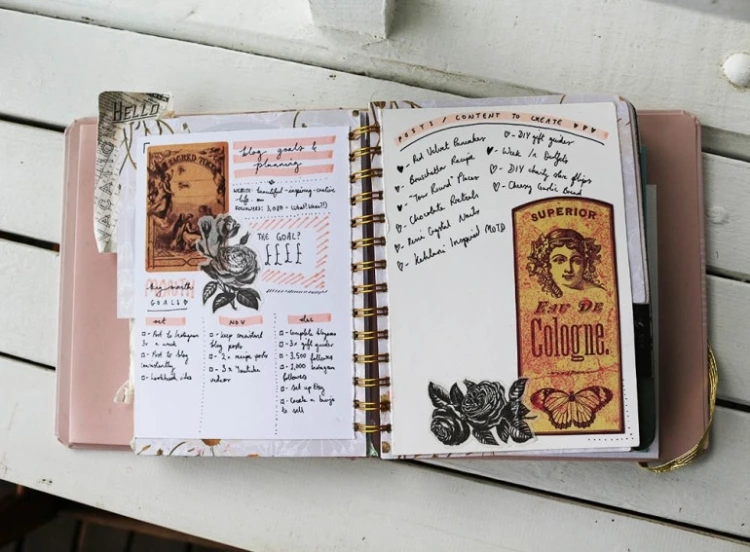 HELLO
VACATION
SACRED
blog goals &
planning
WEBSITE: beautiful-inspiring-creative
-life.
FOLLOWERS: 3,080 - (WHAT?!WHAT?!)
THE GOAL?
££££
by month
GOALS
oct
- Post to Instagram
3x a week
- Post to blog
consistently
- Lookbook video
NOV
- keep consistent
blog posts
- 2x recipe posts
- 3x Youtube
videos
dec
- Complete blogmas
- 3x gift guides
- 3,500 followers
- 2,000 Instagram
followers
- set up Etsy
- Create a
to sell
POSTS / CONTENT TO CREATE
- Red Velvet Pancakes
- Bruschetta Recipe
- "Tour Round" Places
- Chocolate Pretzels
- Crystal Nails
- Kehlani Inspired MOTD
- DIY gift guides
- Week in Outfits
- DIY charity shop flips
- Cheesy Garlic Bread
SUPERIOR
EAU DE
Cologne.